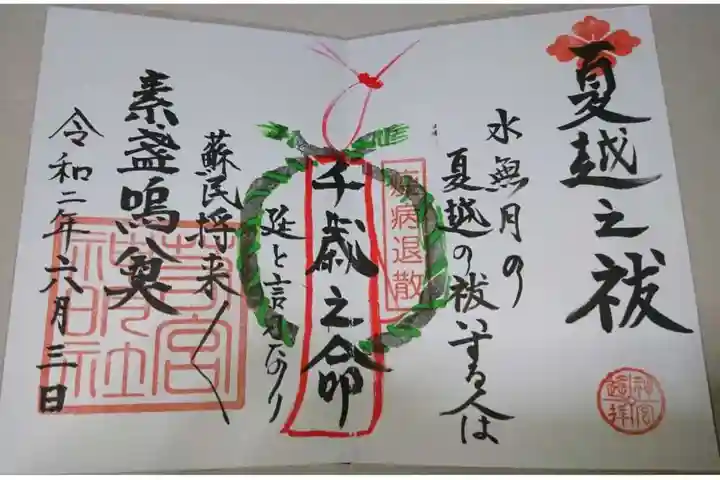 夏越之祓
水無月の
夏越の祓いする人は
疫病退散
千歳之命
延と言ふなり
蘇民将来〱
素盞嗚尊
令和二年六月三日
神明社